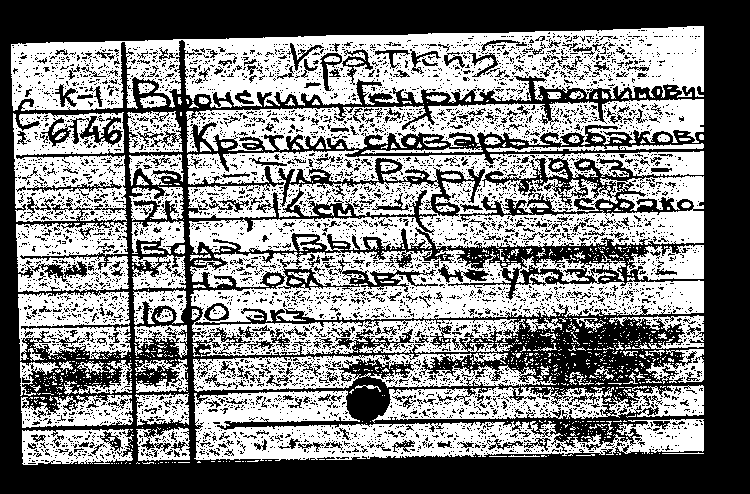 Краткий
С К-1 Вронский, Генрих Трофимович
6146 Краткий словарь собаково
да. – Тула: Рарус, 1993 –
71 с., 14 см. – (Б-чка собако-
вода; Вып. 1)
На обл. авт. не указан. –
1000 экз.